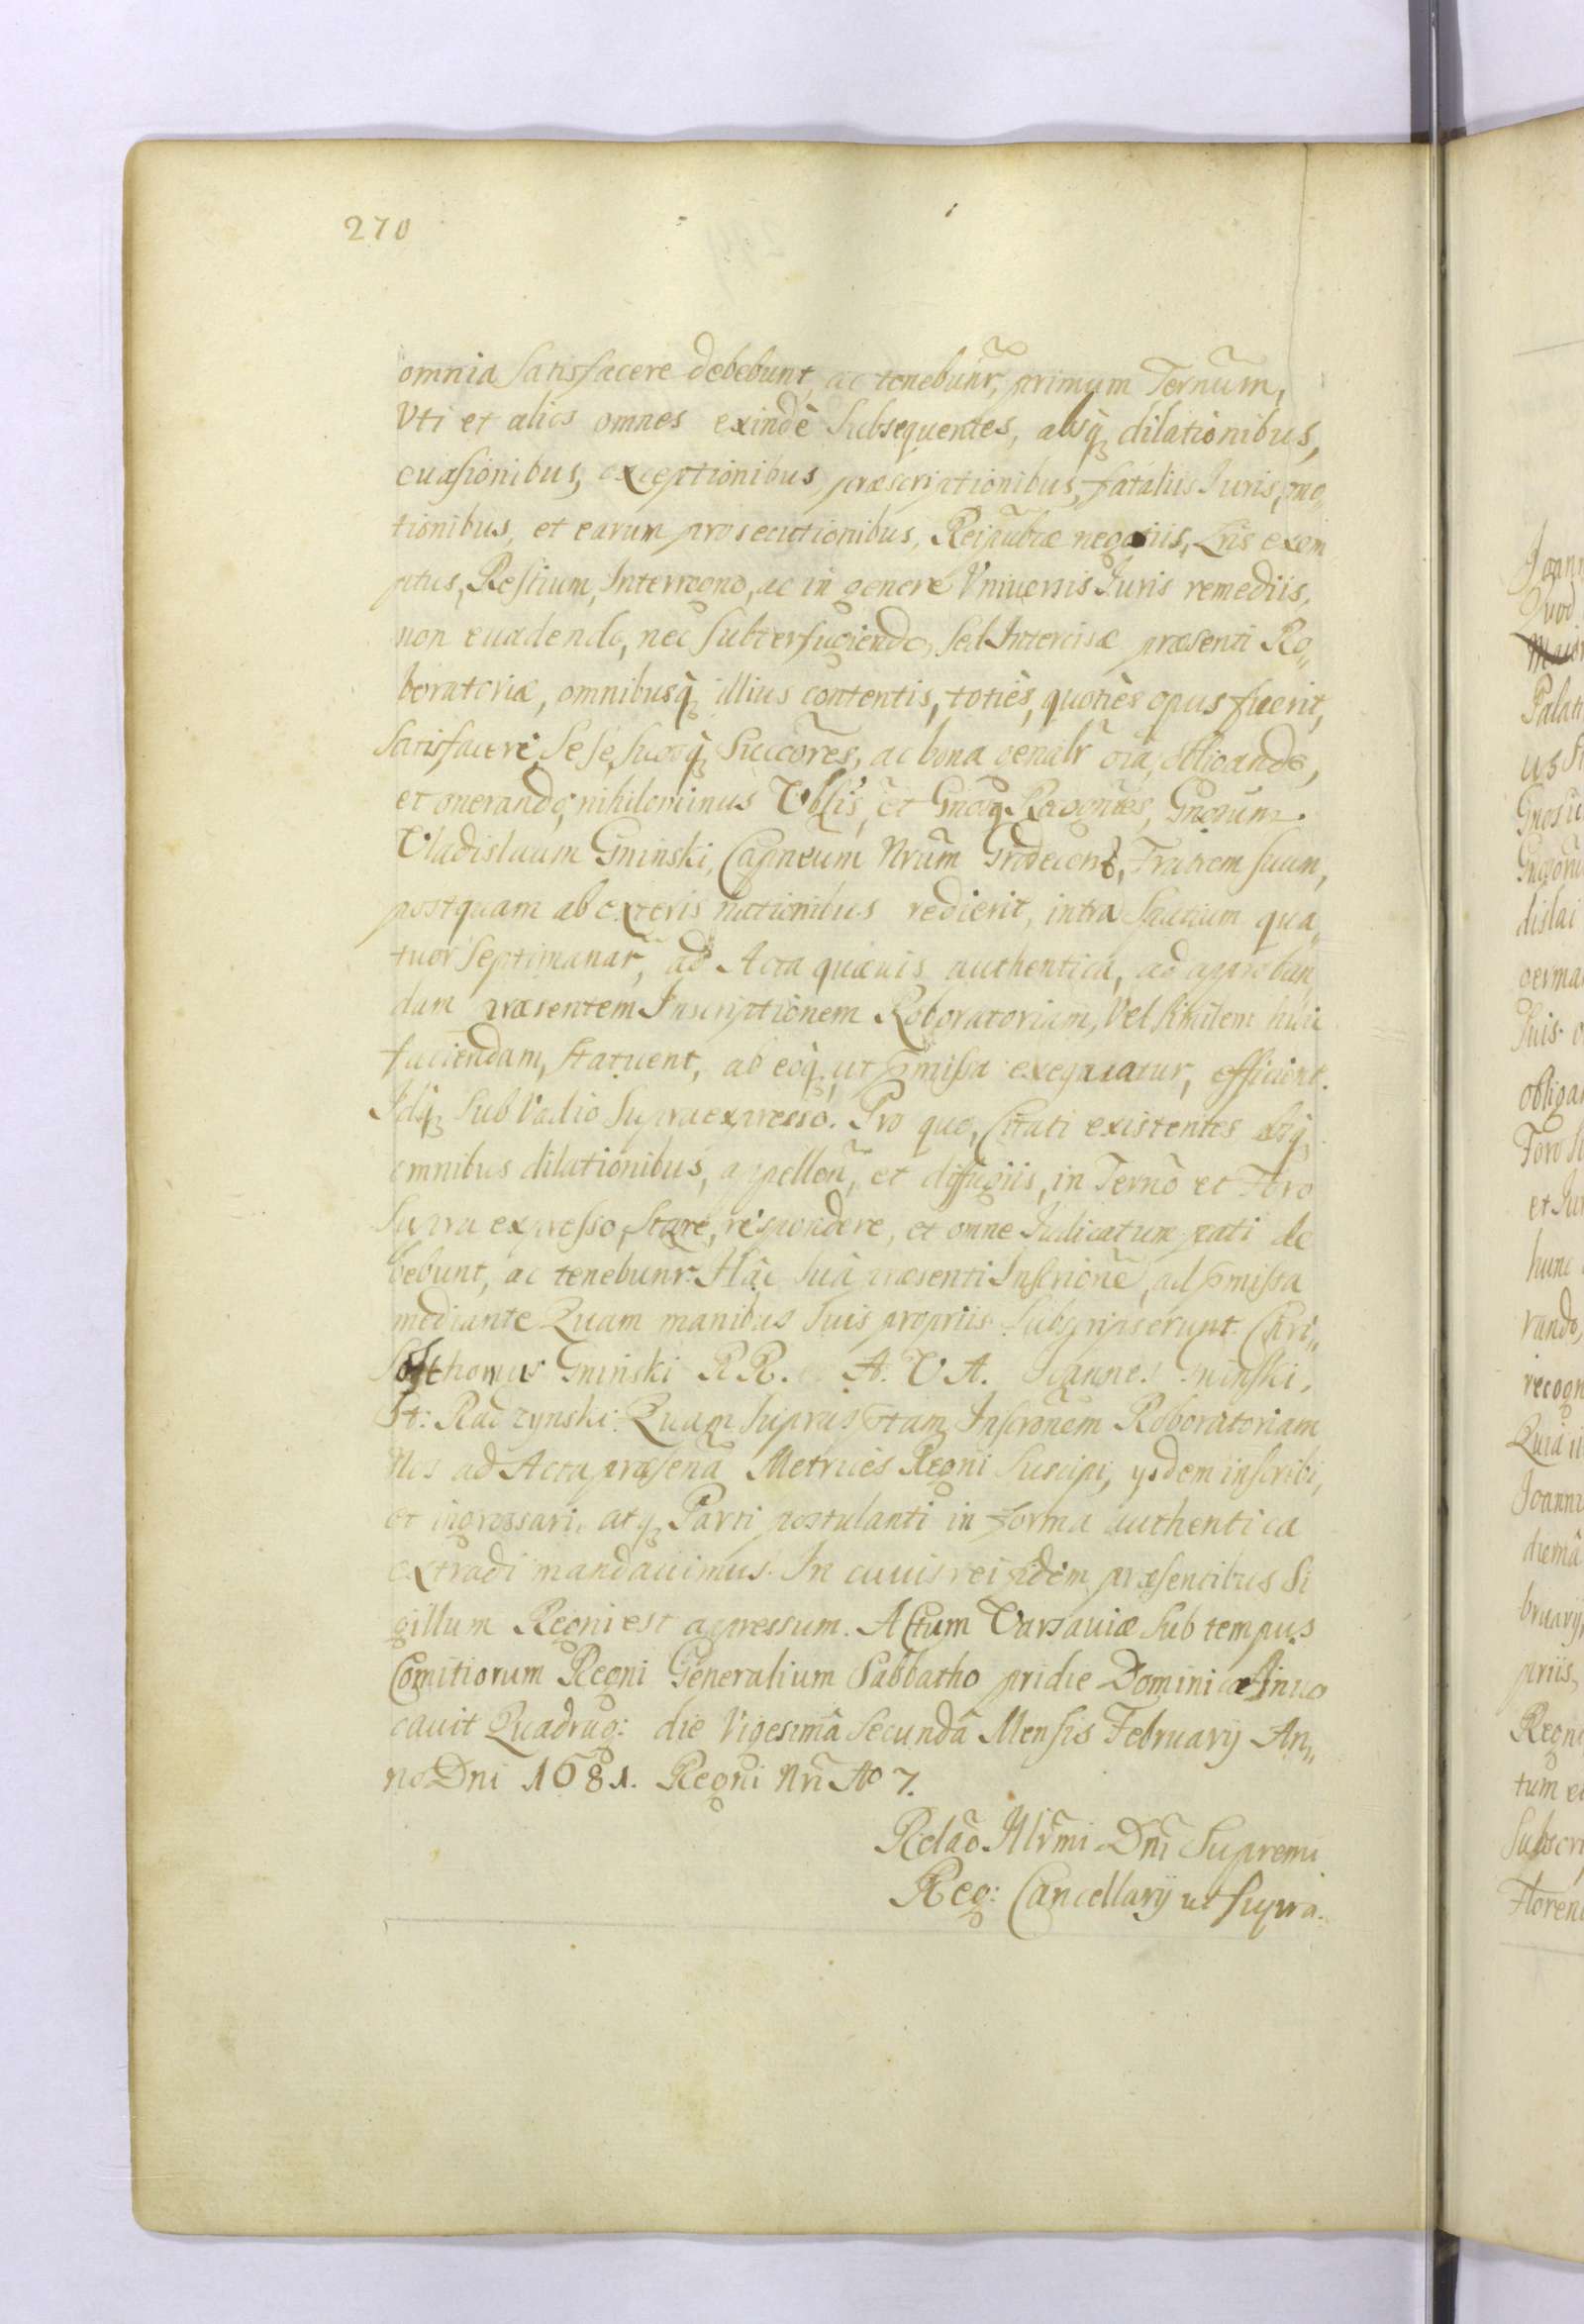 270
omnia satisfacere debebunt, ac tenebunr̃, primum Terñum,
Vti et alios omnes exindè subsequentes, absq dilationibus,
euasionibus, exceptionibus præscriptionibus, fataliis Iuris, mo„
tionibus, et earum prosecutionibus, Reipublcæ negotiis, Lris exem
ptus, Interregno, ac in genere Vniuersis Iuris remediis,
non euadendo, nec subterfugiendo, sed Intercisæ præsenti Ro„
boratoriæ, omnibusq illius contentis, totiès, quotiès opus fuerit,
satisfacere sese, suosq succõres, ac bona genalr̃ oĩa, obligando,
et onerando, nihilominus et Gnosq Gnorum
Vladislaum Gninski, Capneum Nrũm Grodecens, Fratrem suum,
postquam ab exteris nationibus redierit, intra spatium qua„
tuor septimanar̃, ad Acta quæuis authentica, ad approban„
dam præsentem Inscriptionem Roboratoriam, Vel similem huic
faciendam, statuent, ab eoq, ut pmissa exequatur, efficient.
Idq sub Vadio supraexpresso. Pro quo, Citati existentes absq
omnibus dilationibus, appellon̄, et diffugiis, in Terñō et Foro
supra expresso, stare, respondere, et omne Iudicatum pati de
bebunt, ac tenebunr̃. Hac suâ præsenti Inscrione, ad pmissa
mediante Quam manibus suis propriis subscripserunt. Chri„
sosthomus Gninski RR. A. V. A. Ioannes Gninski,
St: Radzynski: Quam suprasptam Inscronem Roboratoriam
Nos ad Acta præsenã Metrices Regni suscipi, ysdem inscribi,
et ingrossari, atq Parti postulanti in forma authentica
extradi mandauimus. In cuius rei fidem præsentibus Si
gillum Regni est appressum. Actum Varsauiæ sub tempus
Comitiorum Regni Generalium Sabbatho pridie Dominicæ Inuo
cauit Quadrag: die Vigesimâ secundâ Mensis February An„
no Dni 1681. Regni Nri Ao 7.
Relaõ Illr̃mi Dni Supremi
Reg: Cancellarij ut supra.
Quod
Palati
us
dislai
germa
suis
obliga
Foro
et Iu
hunc
rando,
recogn
Quia
Joanni
diemâ
bruarij
priis,
Regni
tum e
Subscri
Floren